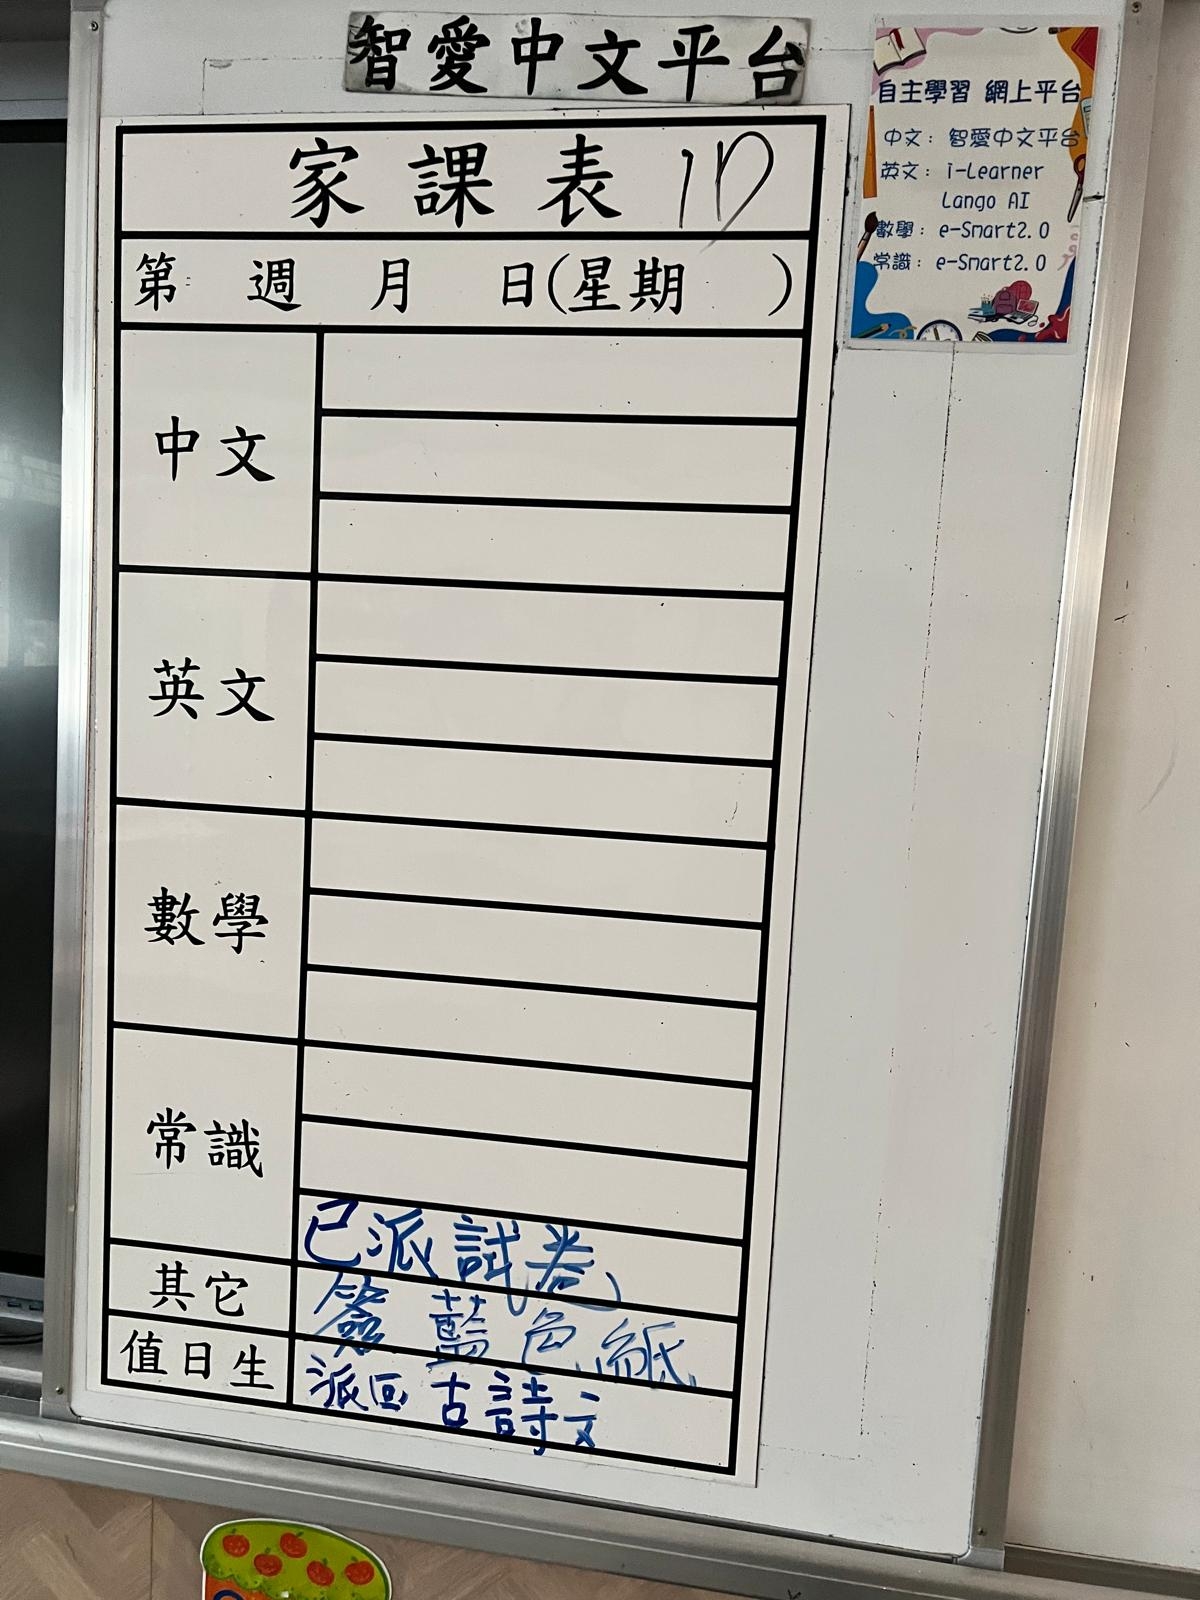 智愛中文平台
家課表 1D
第 週 月 日(星期 )
中文
英文
數學
常識
已派試卷
其它 簽藍色紙
值日生 派回古詩文
自主學習 網上平台
中文：智愛中文平台
英文：i-Learner
Lango AI
數學：e-Smart2.0
常識：e-Smart2.0